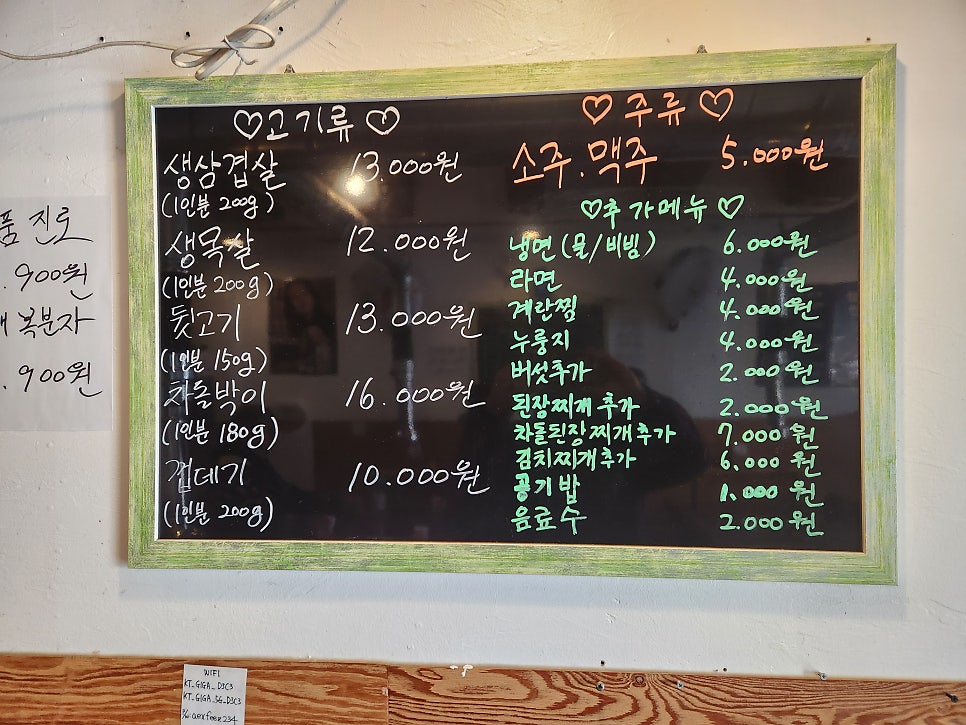 ♡고기류♡
생삼겹살 13.000원
(1인분 200g)
생목살 12.000원
(1인분 200g)
뒷고기 13.000원
(1인분 150g)
차돌박이 16.000원
(1인분 180g)
껍데기 10.000원
(1인분 200g)
♡주류♡
소주.맥주 5.000원
♡추가메뉴♡
냉면(물/비빔) 6.000원
라면 4.000원
계란찜 4.000원
누룽지 4.000원
버섯추가 2.000원
된장찌개추가 2.000원
차돌된장찌개추가 7.000원
김치찌개추가 6.000원
공기밥 1.000원
음료수 2.000원
진로
.900원
복분자
.900원
WIFI
KT_GIGA_D2C3
KT_GIGA_5G_D2C3